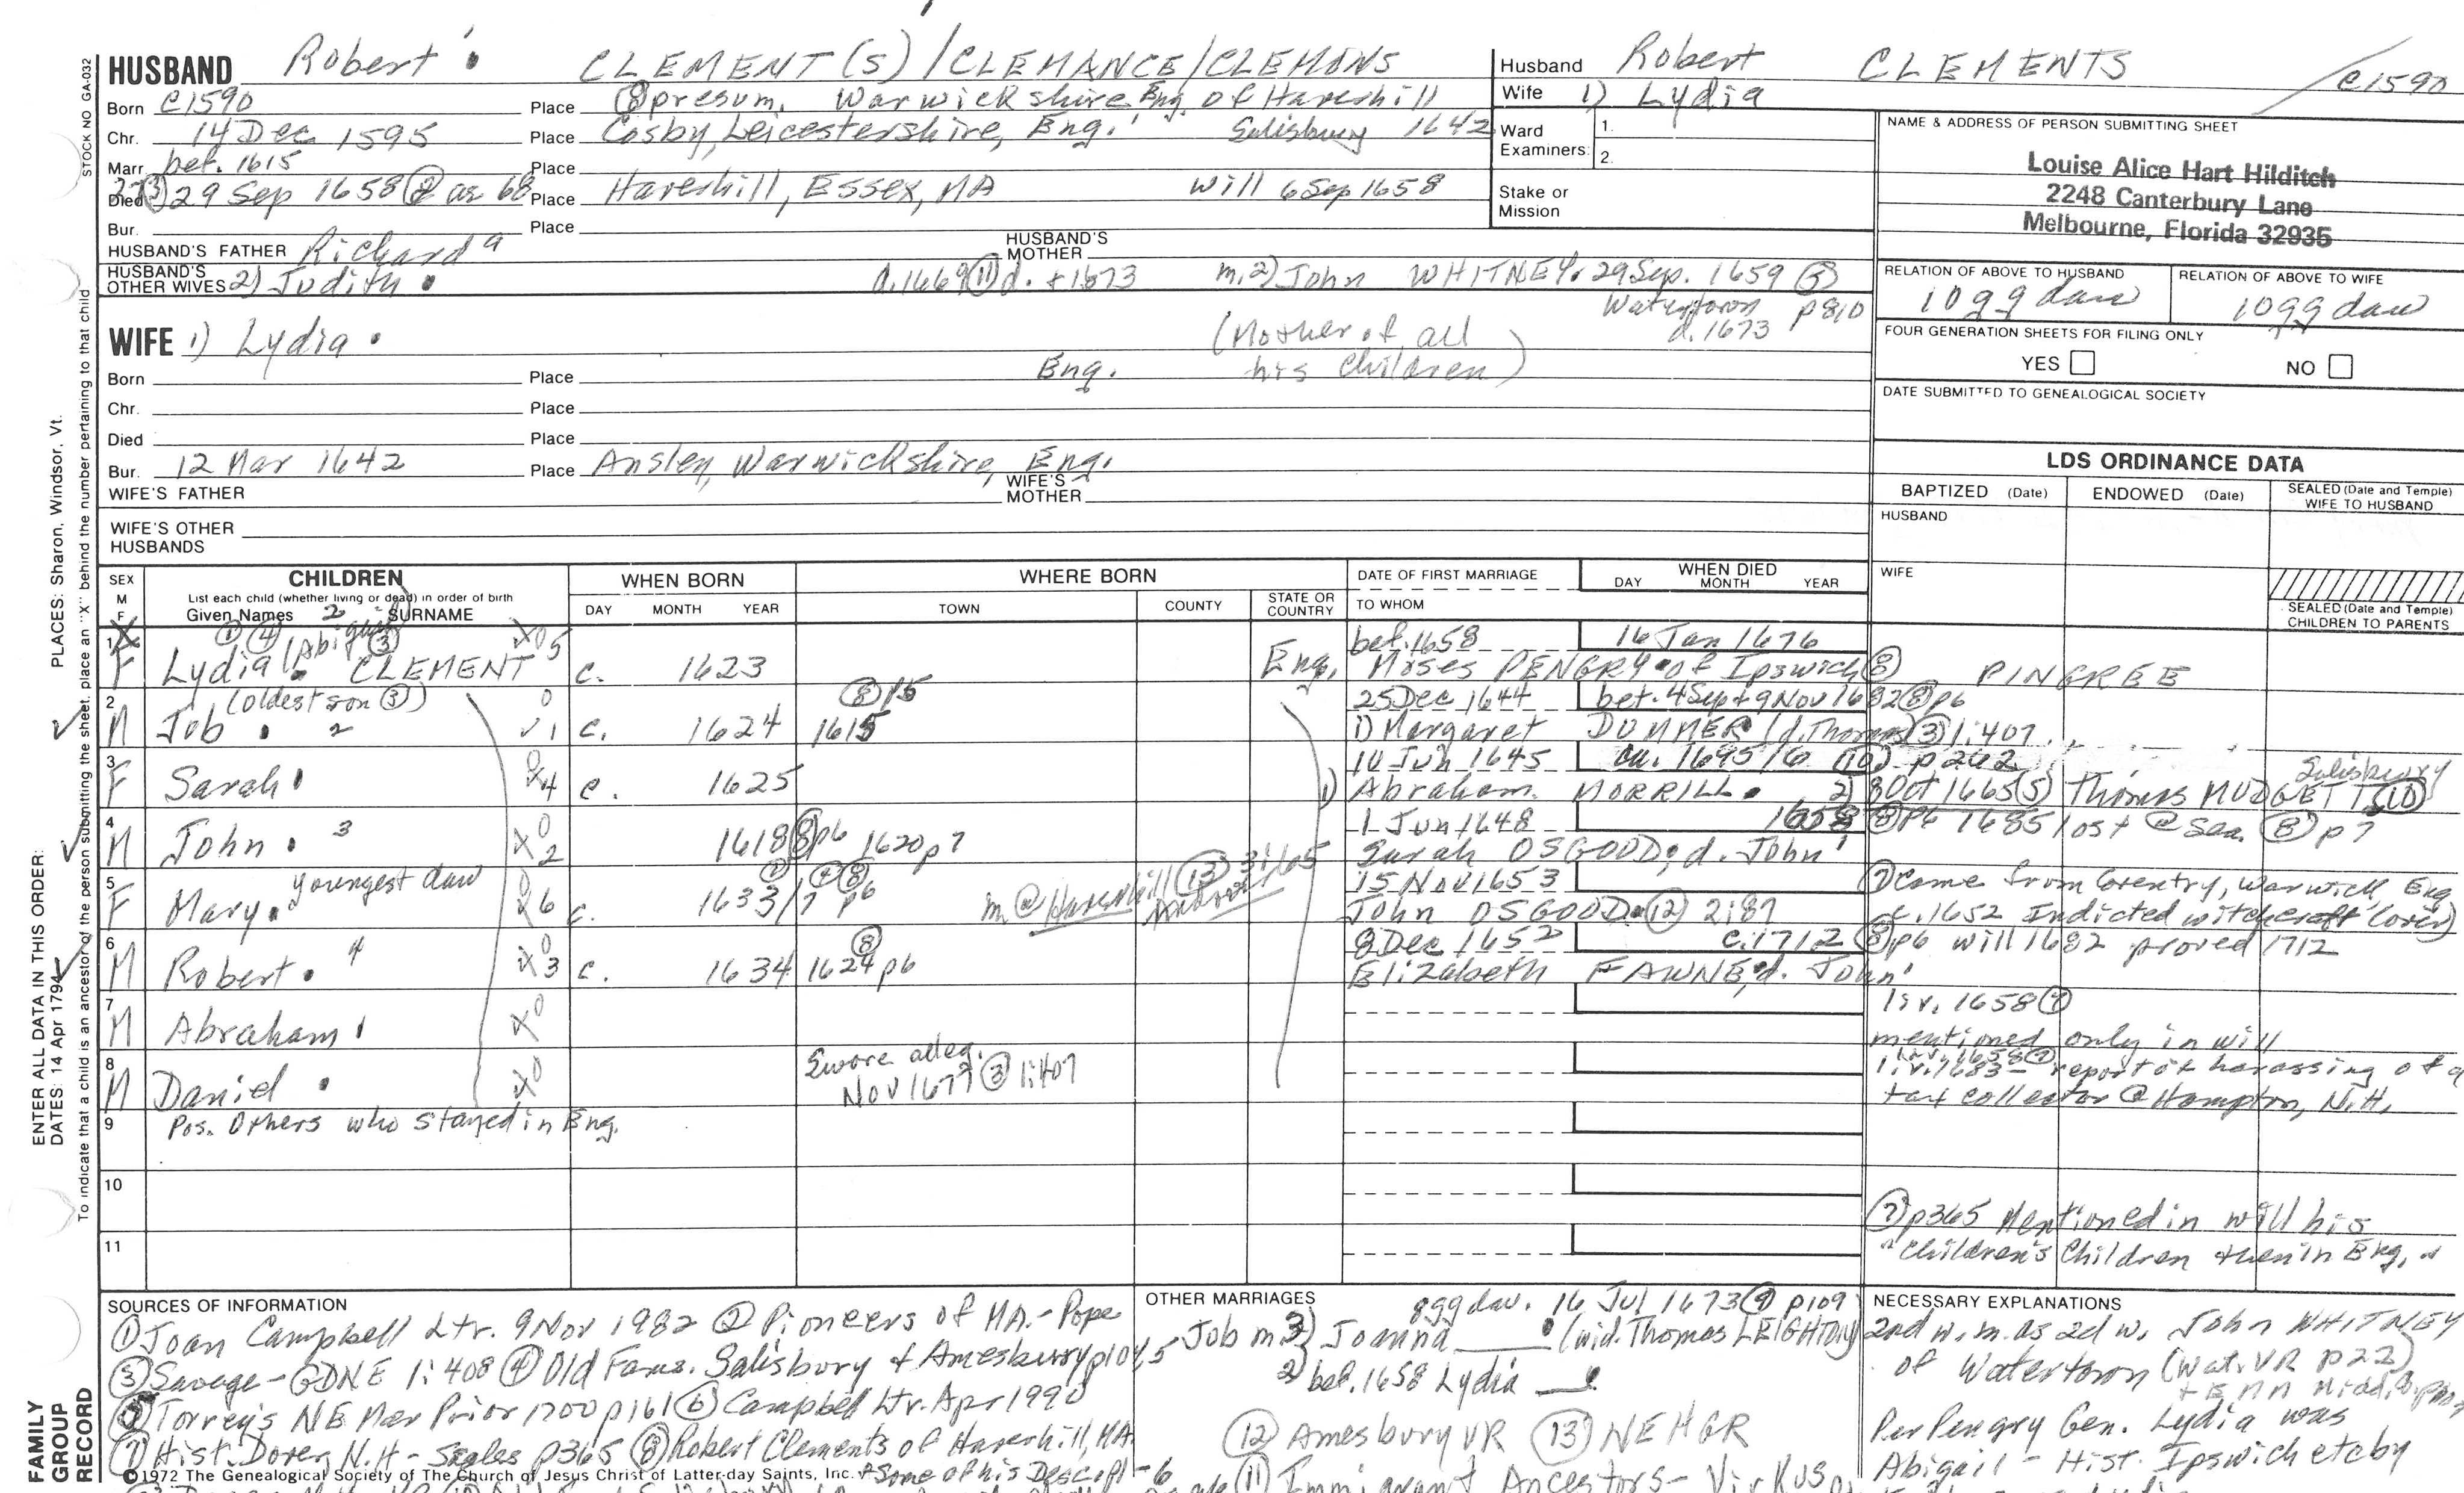 HUSBAND Robert CLEMENT(S)/CLEMANCE/CLEMONS
Born c1590 Place (8) presum. Warwickshire Eng. of Haverhill
Chr. 14 Dec 1595 Place Cosby, Leicestershire, Eng. Salisbury 1642
Marr. bef. 1615 Place
Died (3) 29 Sep 1658 (2) ae 68 Place Haverhill, Essex, MA Will 6 Sep 1658
Bur. Place
HUSBAND'S FATHER Richard HUSBAND'S MOTHER
HUSBAND'S OTHER WIVES 2) Judith d. 1669 (11) d. +1673 m. 2) John WHITNEY 29 Sep. 1659 (5)
Watertown p810
d. 1673
WIFE 1) Lydia (Mother of all his children)
Born Place Eng.
Chr. Place
Died Place
Bur. 12 Mar 1642 Place Ansley, Warwickshire, Eng.
WIFE'S FATHER WIFE'S MOTHER
WIFE'S OTHER HUSBANDS
Husband Robert CLEMENTS c1590
Wife 1) Lydia
Ward Examiners: 1.
2.
Stake or Mission
NAME & ADDRESS OF PERSON SUBMITTING SHEET
Louise Alice Hart Hilditch
2248 Canterbury Lane
Melbourne, Florida 32935
RELATION OF ABOVE TO HUSBAND RELATION OF ABOVE TO WIFE
10 gg dau 10 gg dau
FOUR GENERATION SHEETS FOR FILING ONLY
YES NO
DATE SUBMITTED TO GENEALOGICAL SOCIETY
LDS ORDINANCE DATA
BAPTIZED (Date) ENDOWED (Date) SEALED (Date and Temple) WIFE TO HUSBAND
HUSBAND
WIFE
SEALED (Date and Temple) CHILDREN TO PARENTS
SEX M F CHILDREN WHEN BORN WHERE BORN DATE OF FIRST MARRIAGE WHEN DIED DAY MONTH YEAR
List each child (whether living or dead) in order of birth
Given Names SURNAME DAY MONTH YEAR TOWN COUNTY STATE OR COUNTRY TO WHOM
1 (1) (4) (Abigail (3) X05 bef. 1658 16 Jan 1676
F Lydia CLEMENT c. 1623 Eng. Moses PENGRY of Ipswich (8) PINGREE
2 (oldest son (3)) (8) p5 25 Dec 1644 bet. 4 Sep + 9 Nov 1682 (8) p6
M Job 2 c. 1624 1615 1) Margaret DUMMER (d. Thomas) (3) 1:407
3 10 Jun 1645 ca. 1695/6 (10) p262
F Sarah c. 1625 1) Abraham MORRILL 2) 8 Oct 1665 (5) Thomas MUDGETT (10) Salisbury
4 1 Jun 1648 1658 (8) p6 1685 lost @ Sea. (8) p7
M John 3 1618 (8) p6 1620 p7 Sarah OSGOOD, d. John
5 youngest dau (1) (4) (8) m @ Haverhill (13) 3:165 Andover 15 Nov 1653
F Mary c. 1633/7 p6 John OSGOOD (12) 2:87
(7) Came from Coventry, Warwick, Eng
c. 1652 Indicted witchcraft (over)
6 (8) 8 Dec 1652 c. 1712 (8) p6 will 1682 proved 1712
M Robert 4 c. 1634 1624 p6 Elizabeth FAWNE, d. John
7 liv. 1658 (4)
M Abraham mentioned only in will
8 Swore alleg. liv. 1683 - report of harassing of a
M Daniel Nov 1677 (3) 1:407 tax collector @ Hampton, N.H.
9 Pos. Others who stayed in Eng.
10
(7) p365 Mentioned in will his
11 "Children's Children then in Eng."
SOURCES OF INFORMATION
(1) Joan Campbell Ltr. 9 Nov 1982 (2) Pioneers of MA. - Pope
(3) Savage - GDNE 1:408 (4) Old Fams. Salisbury + Amesbury p104
(5) Torrey's NE Mar Prior 1700 p161 (6) Campbell Ltr. Apr 1990
(7) Hist. Dover, N.H. - Scales p365 (8) Robert Clements of Haverhill, MA.
+ Some of his Desc. p1-6
©1972 The Genealogical Society of The Church of Jesus Christ of Latter-day Saints, Inc.
OTHER MARRIAGES 8gg dau. 16 Jul 1673 (9) p109
Job m 3) Joanna (wid. Thomas LEIGHTON)
2) bef. 1658 Lydia
(12) Amesbury VR (13) NEHGR
(11) Immigrant Ancestors - Virkus
NECESSARY EXPLANATIONS
2nd w. m. as 2d w. John WHITNEY
of Watertown (Wat. VR p22)
Per Pengry Gen. Lydia was
Abigail - Hist. Ipswich etc by
STOCK NO GA-032
PLACES: Sharon, Windsor, Vt.
ENTER ALL DATA IN THIS ORDER:
DATES: 14 Apr 1794
To indicate that a child is an ancestor of the person submitting the sheet, place an "X" behind the number pertaining to that child
FAMILY GROUP RECORD